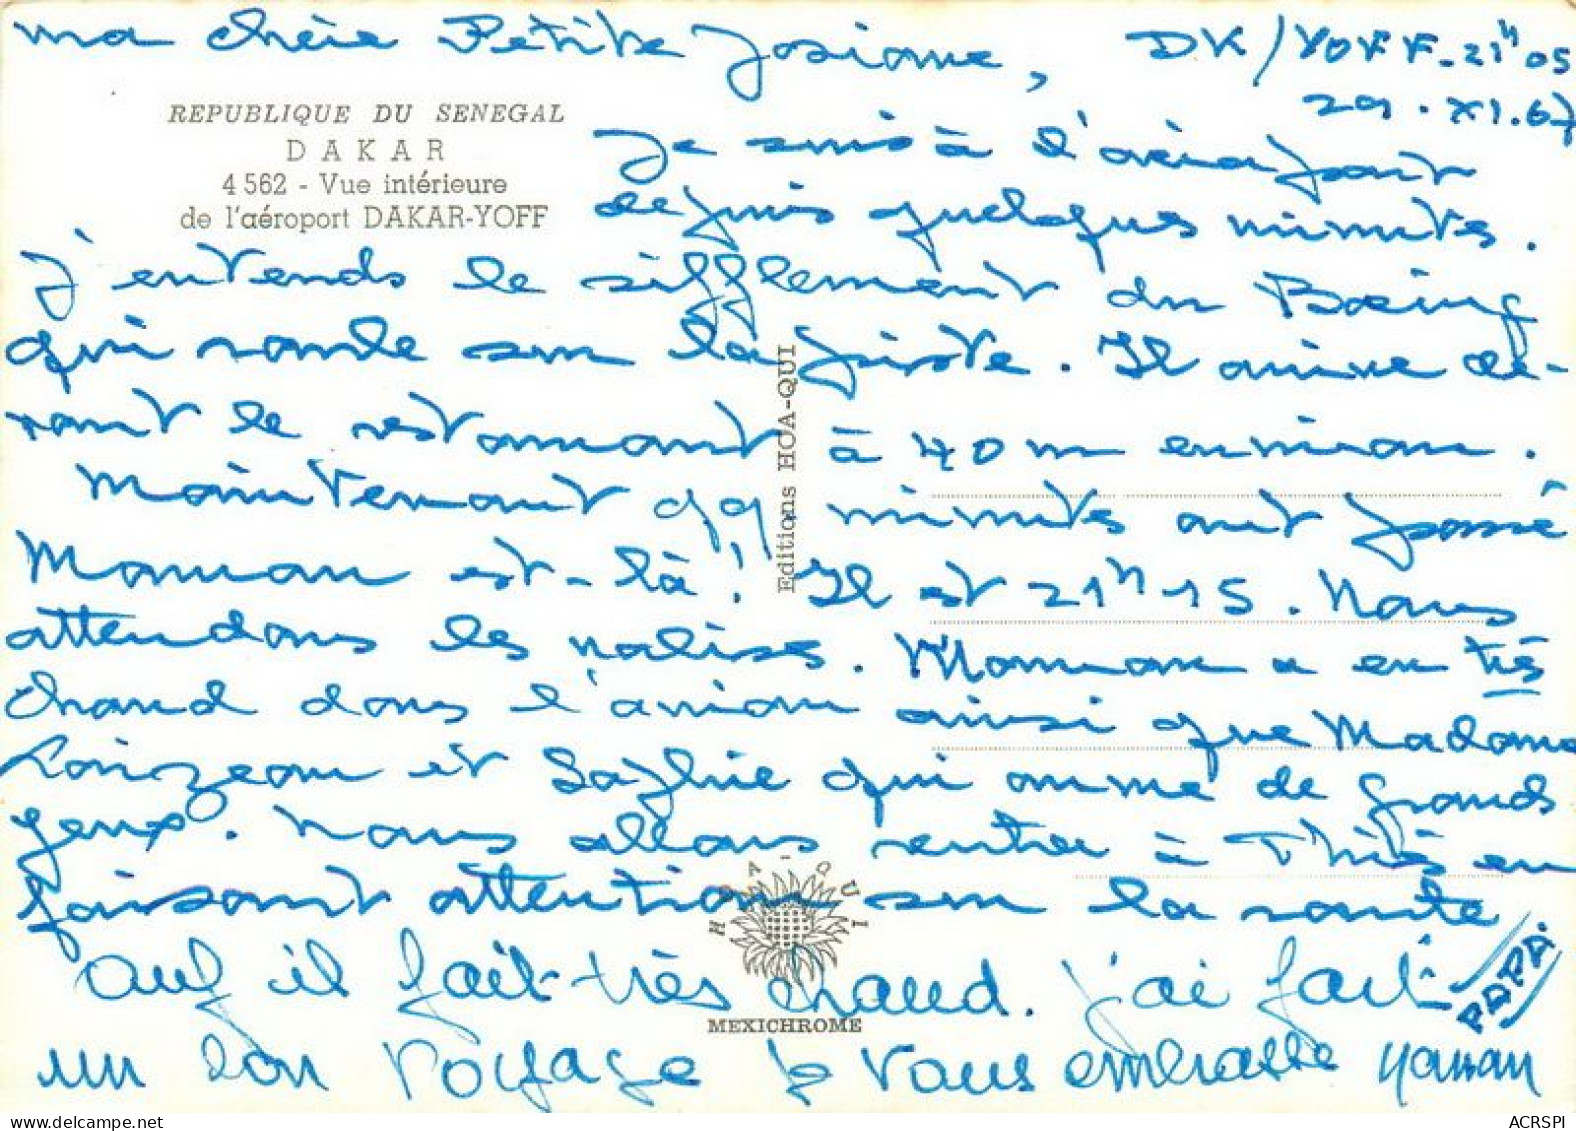 ma chère Petite Josiane, DK/YOFF-21H05
29.XI.67
REPUBLIQUE DU SENEGAL
DAKAR
4 562 - Vue intérieure
de l'aéroport DAKAR-YOFF
Je suis à l'aéroport
depuis quelques minutes.
J'entends le sifflement du Boeing
qui roule sur la piste. Il arrive de-
vant le restaurant à 40 m environ.
Maintenant qq minutes ont passé
Maman est-là! Il est 21H15. Nous
attendons les valises. Maman a eu très
chaud dans l'avion ainsi que Madame
Loizeau et Sophie qui ouvre de grands
yeux. Nous allons rentrer à Thiès en
faisant attention sur la route.
PAPA.
Ouf il fait très chaud. J'ai fait
un bon voyage je vous embrasse Maman
Editions HOA-QUI
HOA-QUI
MEXICHROME
ACRSPI